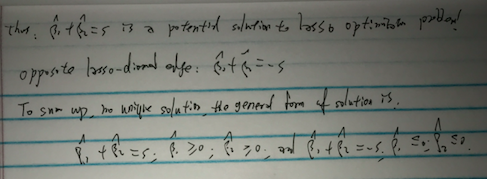 Thus, β̂₁+β̂₂=s is a potential solution to lasso optimization problem!
opposite lasso-diamond edge: β̂₁+β̂₂=-s
To sum up, no unique solution, the general form of solution is.
β̂₁+β̂₂=s; β̂₁≥0; β̂₂≥0; and β̂₁+β̂₂=-s; β̂₁≤0; β̂₂≤0.